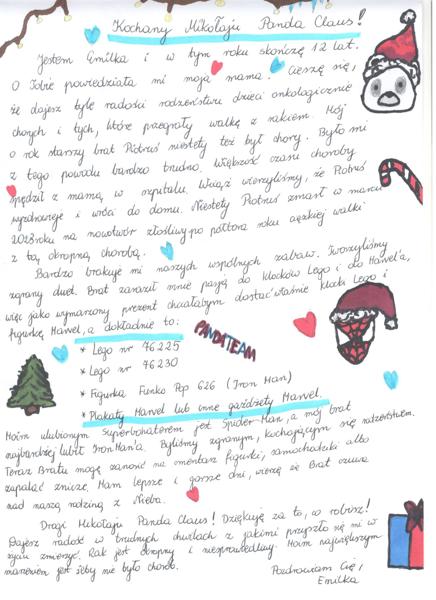 Kochany Mikołaju Panda Claus!
Jestem Emilka i w tym roku skończę 12 lat.
O Tobie powiedziała mi moja mama. Cieszę się,
że dajesz tyle radości rodzeństwu dzieci onkologicznie
chorych i tych, które przegrały walkę z rakiem. Mój
o rok starszy brat Piotruś niestety też był chory. Było mi
z tego powodu bardzo trudno. Większość czasu choroby
spędził z mamą w szpitalu. Wciąż wierzyliśmy, że Piotruś
wyzdrowieje i wróci do domu. Niestety Piotruś zmarł w marcu
2023roku na nowotwór złośliwy po półtora roku ciężkiej walki
z tą okropną chorobą.
Bardzo brakuje mi naszych wspólnych zabaw. Tworzyliśmy
zgrany duet. Brat zaraził mnie pasją do klocków Lego i do Marvel'a,
więc jako wymarzony prezent chciałabym dostać właśnie klocki Lego i
figurkę Marvel, a dokładnie to:
* Lego nr 76225
PANDATEAM
* Lego nr 76230
* Figurka Funko Pop 626 (Iron Man)
* Plakaty Marvel lub inne gadżety Marvel.
Moim ulubionym superbohaterem jest Spider-Man, a mój brat
najbardziej lubił IronMan'a. Byliśmy zgranym, kochającym się rodzeństwem.
Teraz Bratu mogę zanosić na cmentarz figurki, samochodziki albo
zapalać znicze. Mam lepsze i gorsze dni, wierzę że Brat czuwa
nad naszą rodziną z Nieba.
Drogi Mikołaju Panda Claus! Dziękuję za to, co robisz!
Dajesz radość w trudnych chwilach z jakimi przyszło się mi w
życiu zmierzyć. Rak jest okropny i niesprawiedliwy. Moim największym
marzeniem jest żeby nie było chorób.
Pozdrawiam Cię,
Emilka